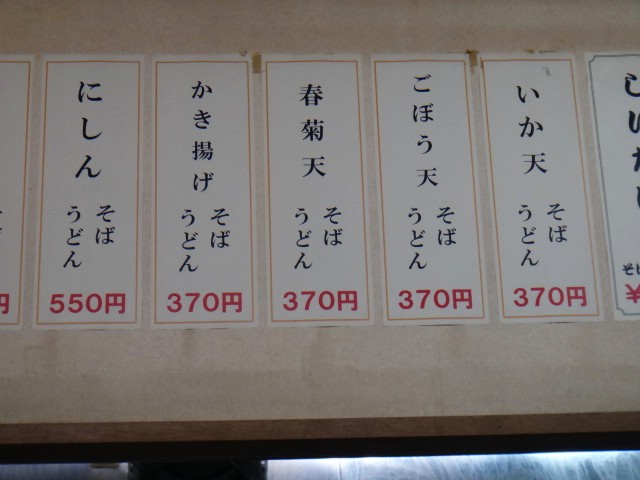 いか天
そば
うどん
370円
ごぼう天
そば
うどん
370円
春菊天
そば
うどん
370円
かき揚げ
そば
うどん
370円
にしん
そば
うどん
550円
円